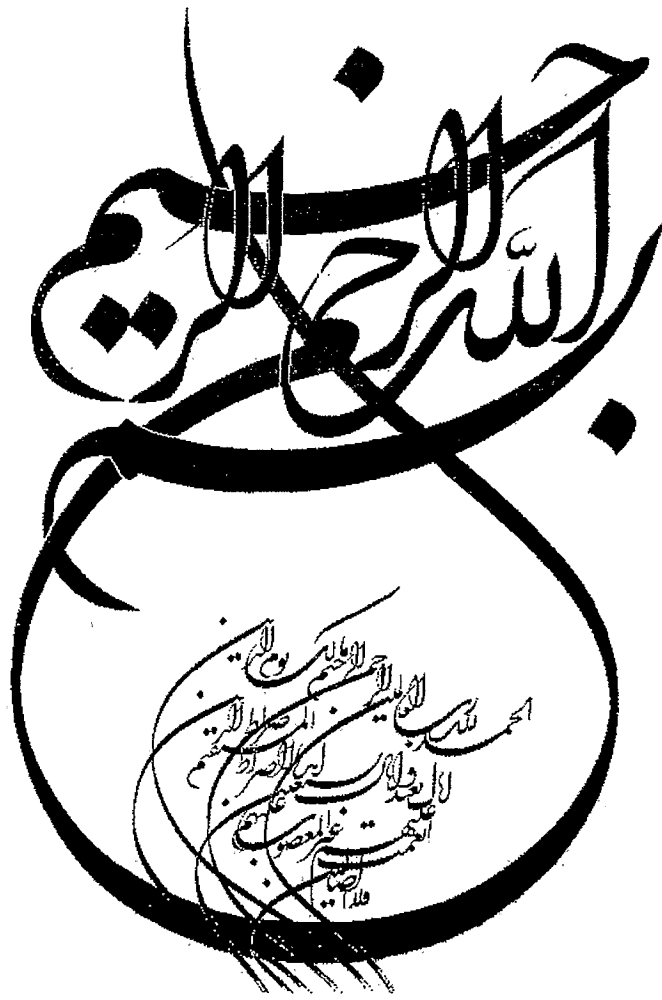 بسم الله الرحمن الرحيم
الحمد لله رب العالمين
الرحمن الرحيم مالك يوم الدين
اياك نعبد واياك نستعين
اهدنا الصراط المستقيم صراط الذين
انعمت عليهم غير المغضوب عليهم
ولا الضالين